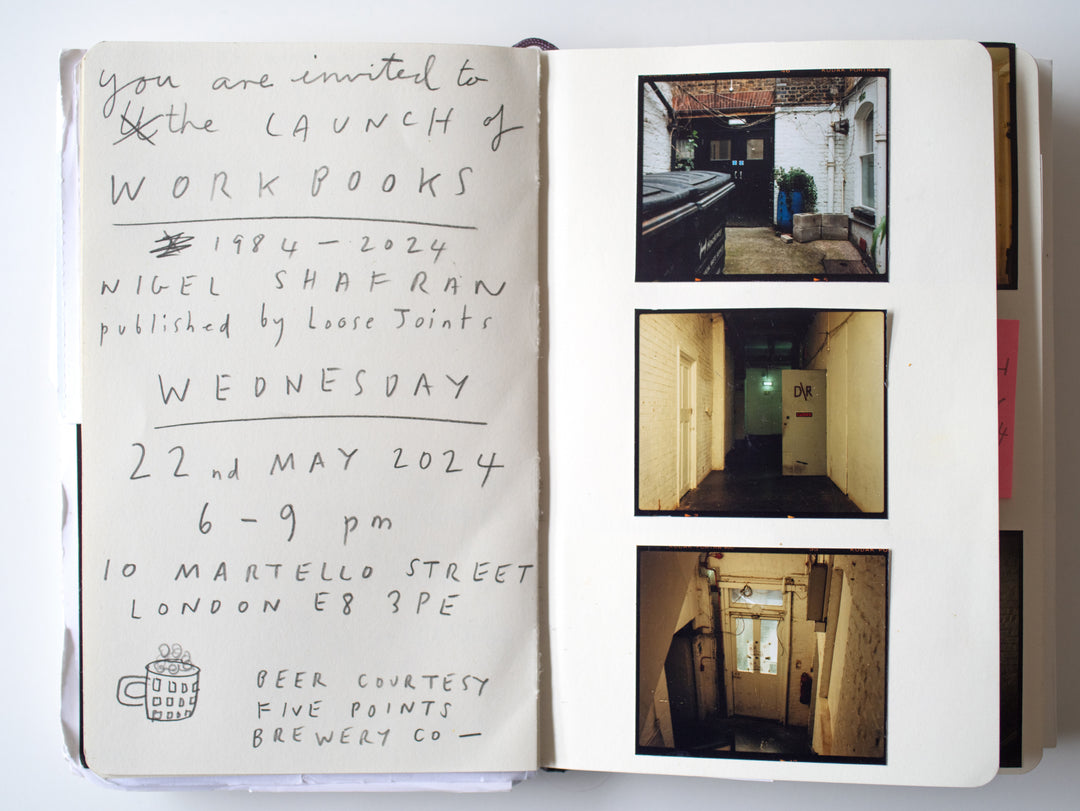 you are invited to
the LAUNCH of
WORKBOOKS
1984 – 2024
NIGEL SHAFRAN
published by Loose Joints
WEDNESDAY
22nd MAY 2024
6 – 9 pm
10 MARTELLO STREET
LONDON E8 3PE
BEER COURTESY
FIVE POINTS
BREWERY CO –
KODAK PORTRA 400
D\R
KODAK PO